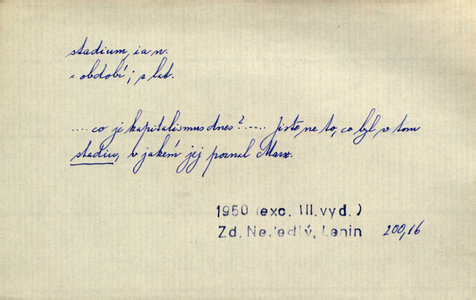 stadium, ia n.
= období; z let.
.... co je kapitalismus dnes? ..... Jistě ne to, co byl v tom
stadiu, v jakém jej poznal Marx.
1950 (exc. III. vyd.)
Zd. Nejedlý, Lenin 200,16